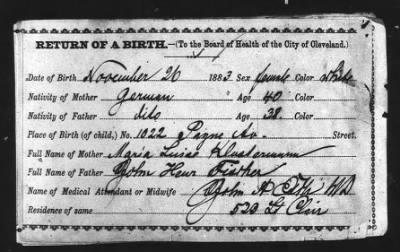 RETURN OF A BIRTH.—(To the Board of Health of the City of Cleveland.)
Date of Birth November 26 1883 Sex female Color White
Nativity of Mother German " Age 40 Color "
Nativity of Father dito " Age 38. Color "
Place of Birth (of child,) No. 1022 Payne Av. Street.
Full Name of Mother Maria Luise
Full Name of Father John Henr Fischer
Name of Medical Attendant or Midwife John A MD
Residence of same 520 St Clair